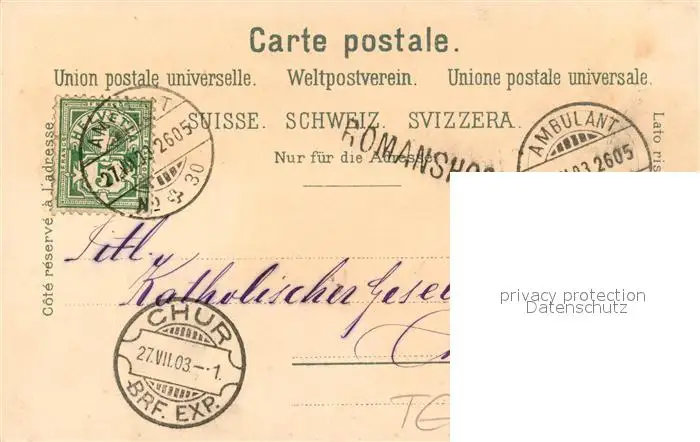 Carte postale.
Union postale universelle. Weltpostverein. Unione postale universale.
SUISSE. SCHWEIZ. SVIZZERA.
Nur für die Adresse
Côté réservé à l'adresse
Lato ris
HELVETIA
2605
No 4 30
ROMANSHO
AMBULANT
03 2605
Titl.
Katholischer Gesel
CHUR
27.VII.03.–1.
BRF. EXP.
privacy protection
Datenschutz